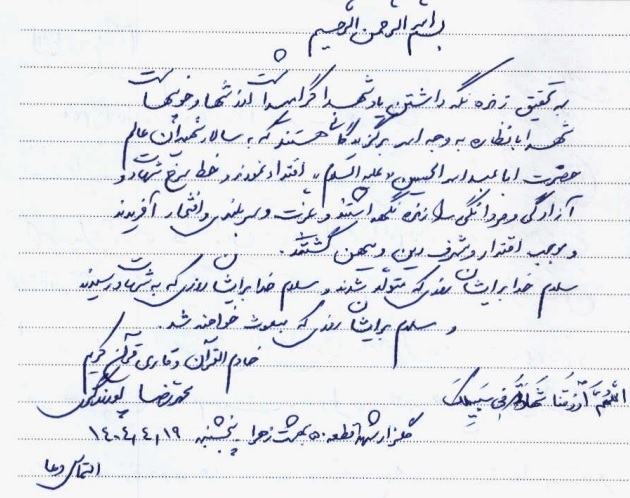 بسم الله الرحمن الرحیم
به تحقیق زنده نگه داشتن یاد شهدا گرامیداشت ارزشها و خوبیهاست
شهدا با نظاره به وجه الله برگزیدگانی هستند که به سالار شهیدان عالم
حضرت اباعبدالله الحسین «علیه السلام» اقتداء نمودند و خط سرخ شهادت و
آزادگی و مردانگی را زنده نگهداشتند و عزت و سربلندی و افتخار آفریدند
و موجب اقتدار و شرف دین و میهن گشتند.
سلام خدا برایشان روزی که متولد شدند و سلام خدا برایشان روزی که به شهادت رسیدند
و سلام برایشان روزی که مبعوث خواهند شد.
خادم القرآن و قاری قرآن کریم
اللهم ارزقنا شهادة فی سبیلک
محمدرضا
گلزار شهدا قطعه ۵۰ بهشت زهرا پنجشنبه ۱۴۰۴/۴/۱۹
التماس دعا